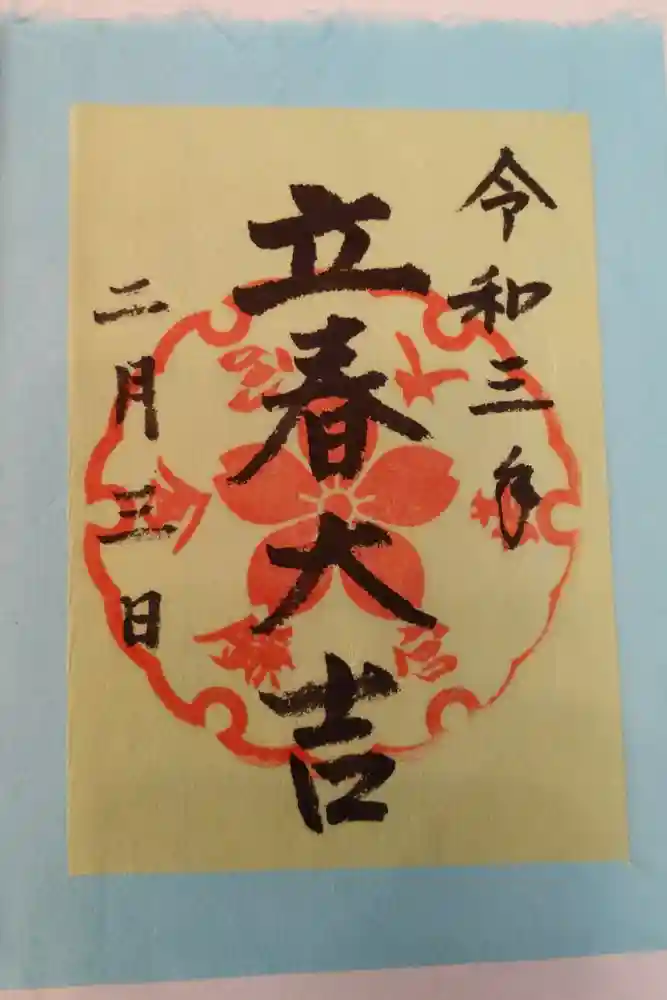 令和三年
立春大吉
二月三日